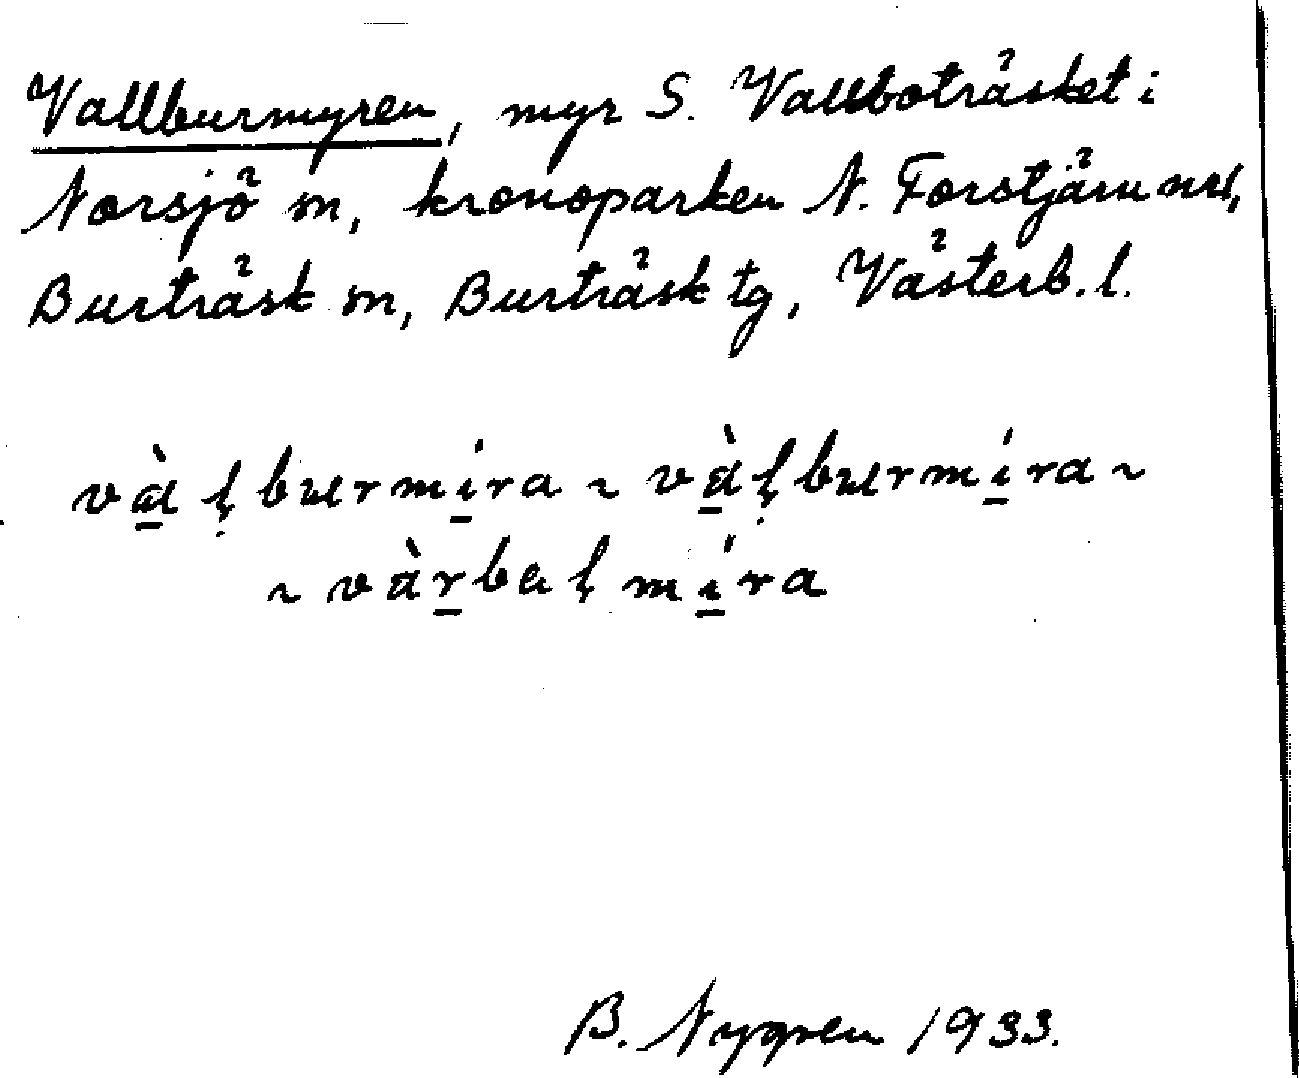 Vallburmyren, myr S. Vallboträsket i
Norsjö sn, kronoparken N. Forstjärn nr 1,
Burträsk sn, Burträsk tg, Västerb. l.
vàḷburmíra ~ vàḷburmíra ~
~ vàrbaḷmíra
B. Nygren 1933.